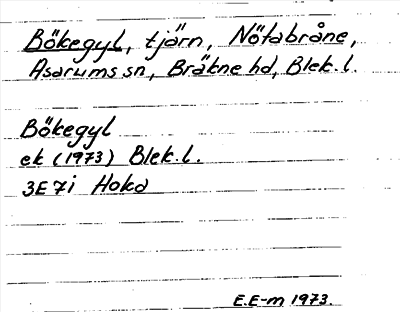 Bökegyl, tjärn, Nötabråne,
Asarums sn, Bräkne hd, Blek. l.
Bökegyl
ek (1973) Blek. l.
3E 7i Hoka
E.E-m 1973.